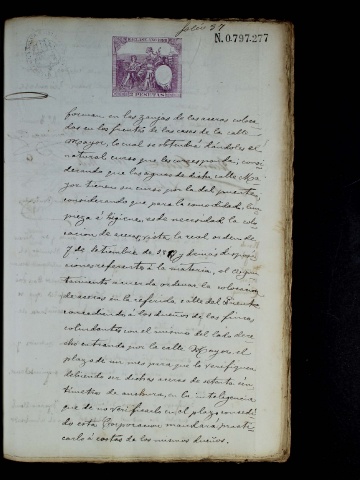 folio 37
N.0.797.277
PESETAS
forman en las zanjas de las aceras coloca-
das en los frentes de las casas de la calle
Mayor, lo cual se obtendrá dándoles el
natural curso que les corresponda; consi-
derando que las aguas de dicha calle Ma-
yor tienen su curso por la del puente,
considerando que para la comodidad, lim-
pieza é higiene, es de necesidad la colo-
cacion de aceras, vista la real orden de
7 de Setiembre de y demas disposi-
ciones referente á la materia, el Ayun-
tamiento acuerda ordenar la colocacion
de aceras en la referida calle del Puente
á los dueños de las fincas
colindantes con el mismo del lado dere-
cho entrando por la calle Mayor, el
plazo de un mes para que lo verifiquen
debiendo ser dichas aceras de setenta cen-
tímetros de anchura, en la inteligencia
que de no verificarlo en el plazo concedi-
do esta Corporacion mandará practi-
carlo á costas de los mismos dueños.